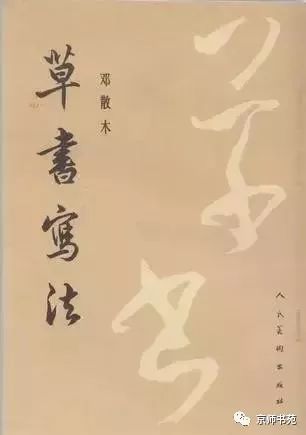 草書寫法
邓散木
草书
人民美術出版社
京师书苑